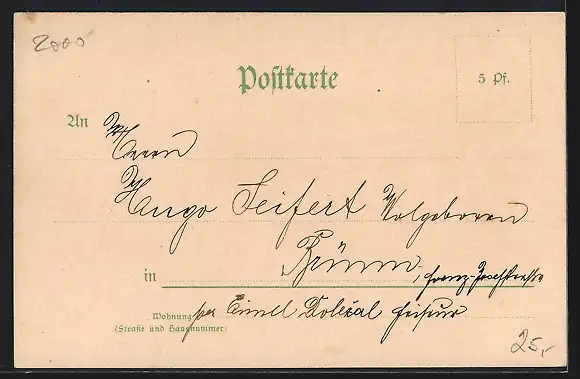 2000
Postkarte
5 Pf.
An
Herrn
Hugo Seifert Wolgeboren
in
Brünn, Franz-Josefstrasse
Wohnung
(Straße und Hausnummer)
per Doležal Friseur
25,-